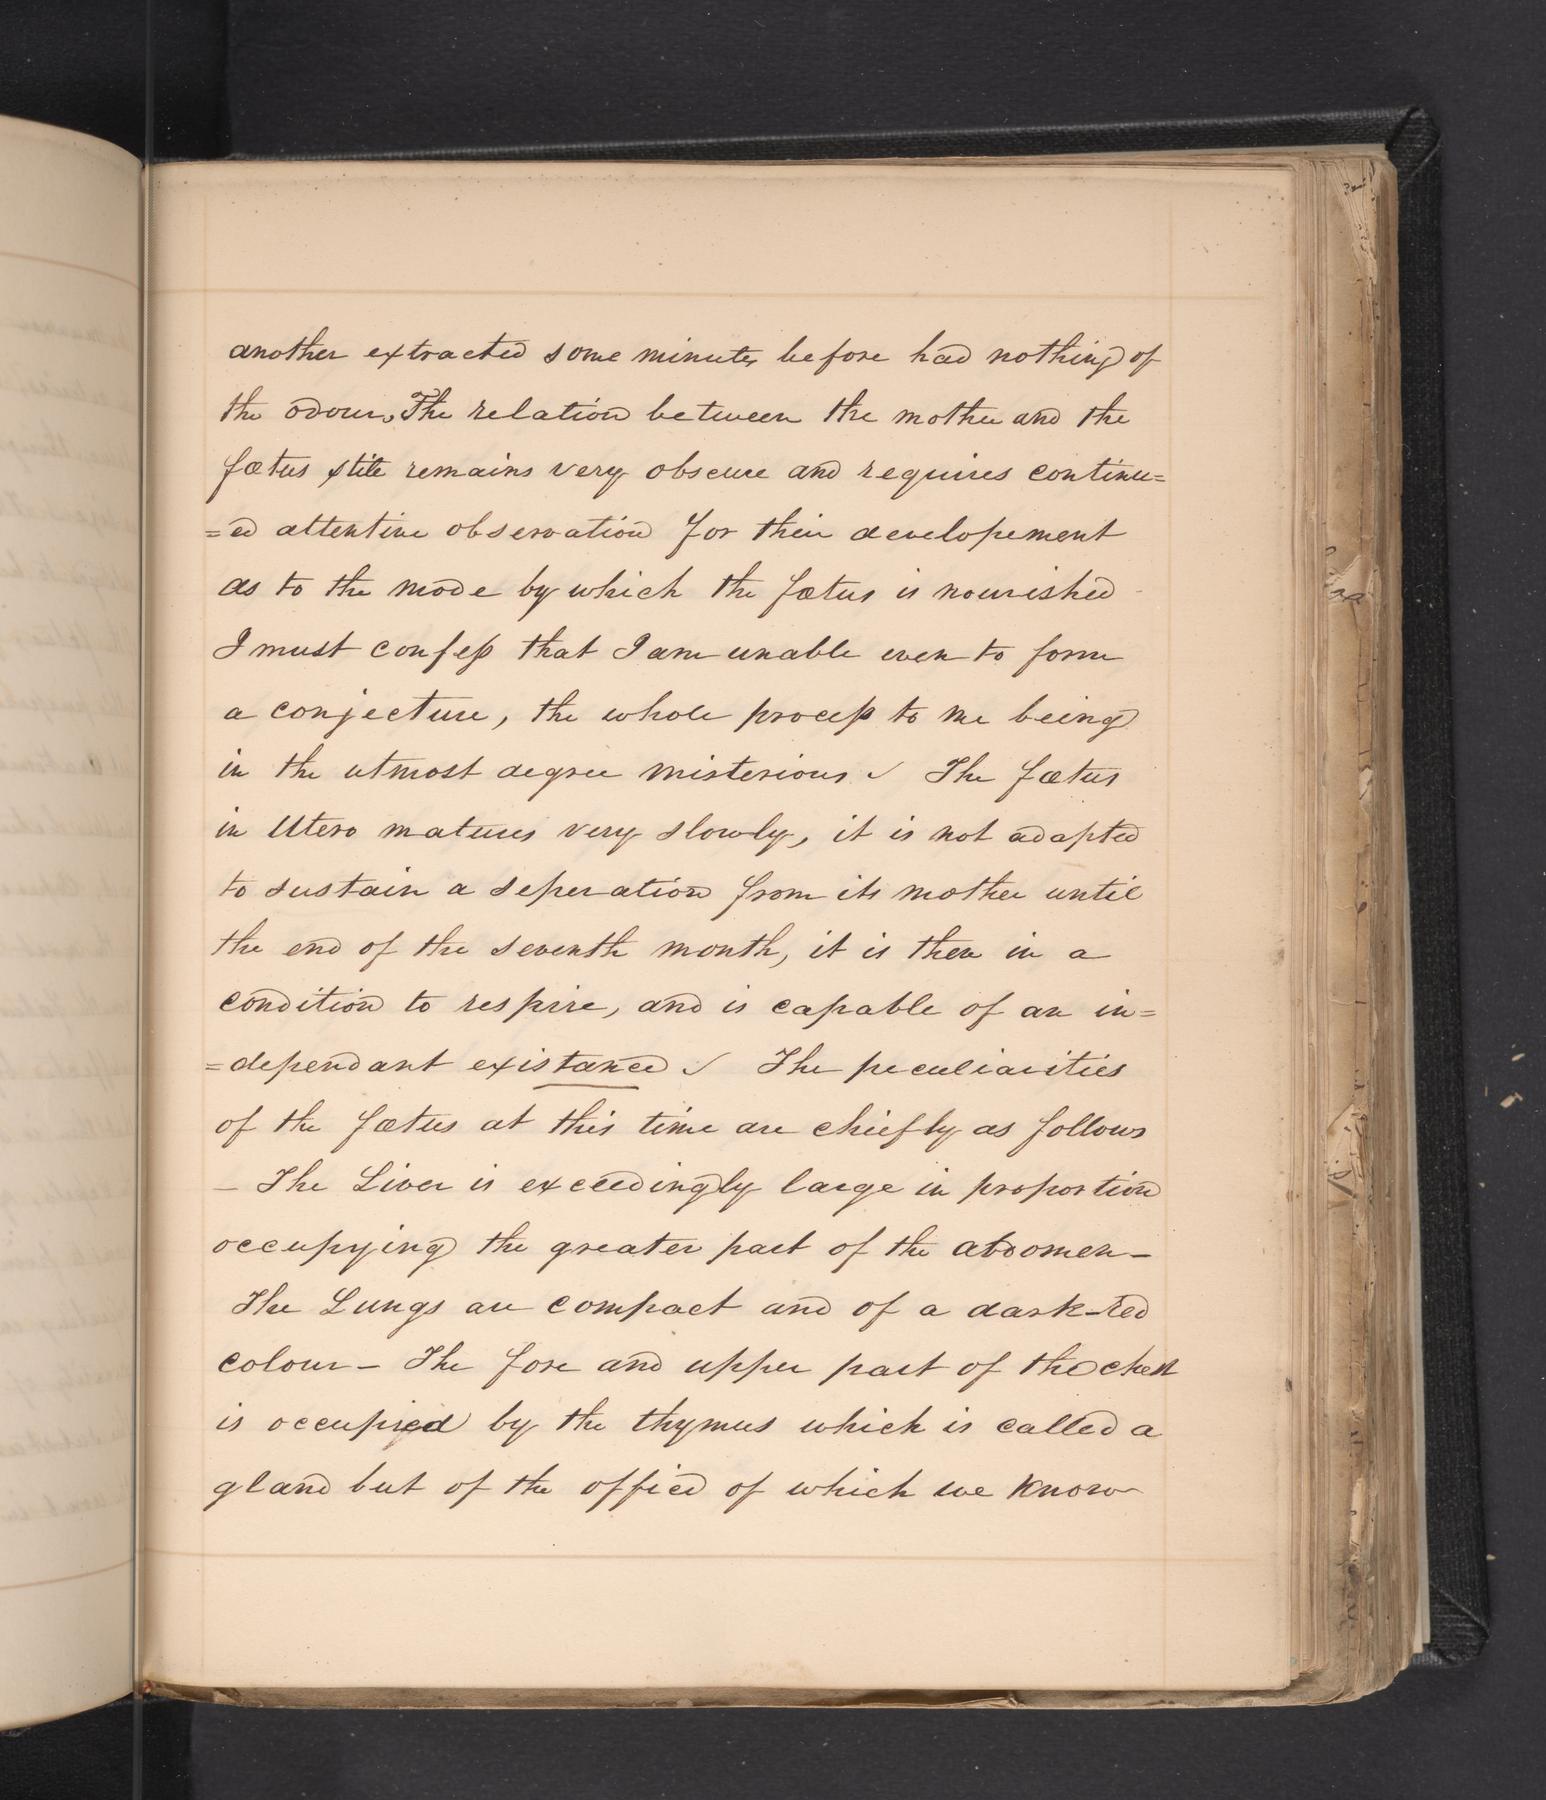 another extracted some minutes before had nothing of
the odour, The relation between the mother and the
fœtus still remains very obscure and requires continu=
=ed attentive observation for their developement
as to the mode by which the fœtus is nourished
I must confess that I am unable even to form
a conjecture, the whole process to me being
in the utmost degree misterious ✓ The fœtus
in Utero matures very slowly, it is not adapted
to sustain a seperation from its mother until
the end of the seventh month, it is then in a
condition to respire, and is capable of an in=
=dependant existance ✓ The peculiarities
of the fœtus at this time are chiefly as follows
— The Liver is exceedingly large in proportion
occupying the greater part of the abdomen—
The Lungs are compact and of a dark-red
colour — The fore and upper part of the chest
is occupied by the thymus which is called a
gland but of the office of which we know